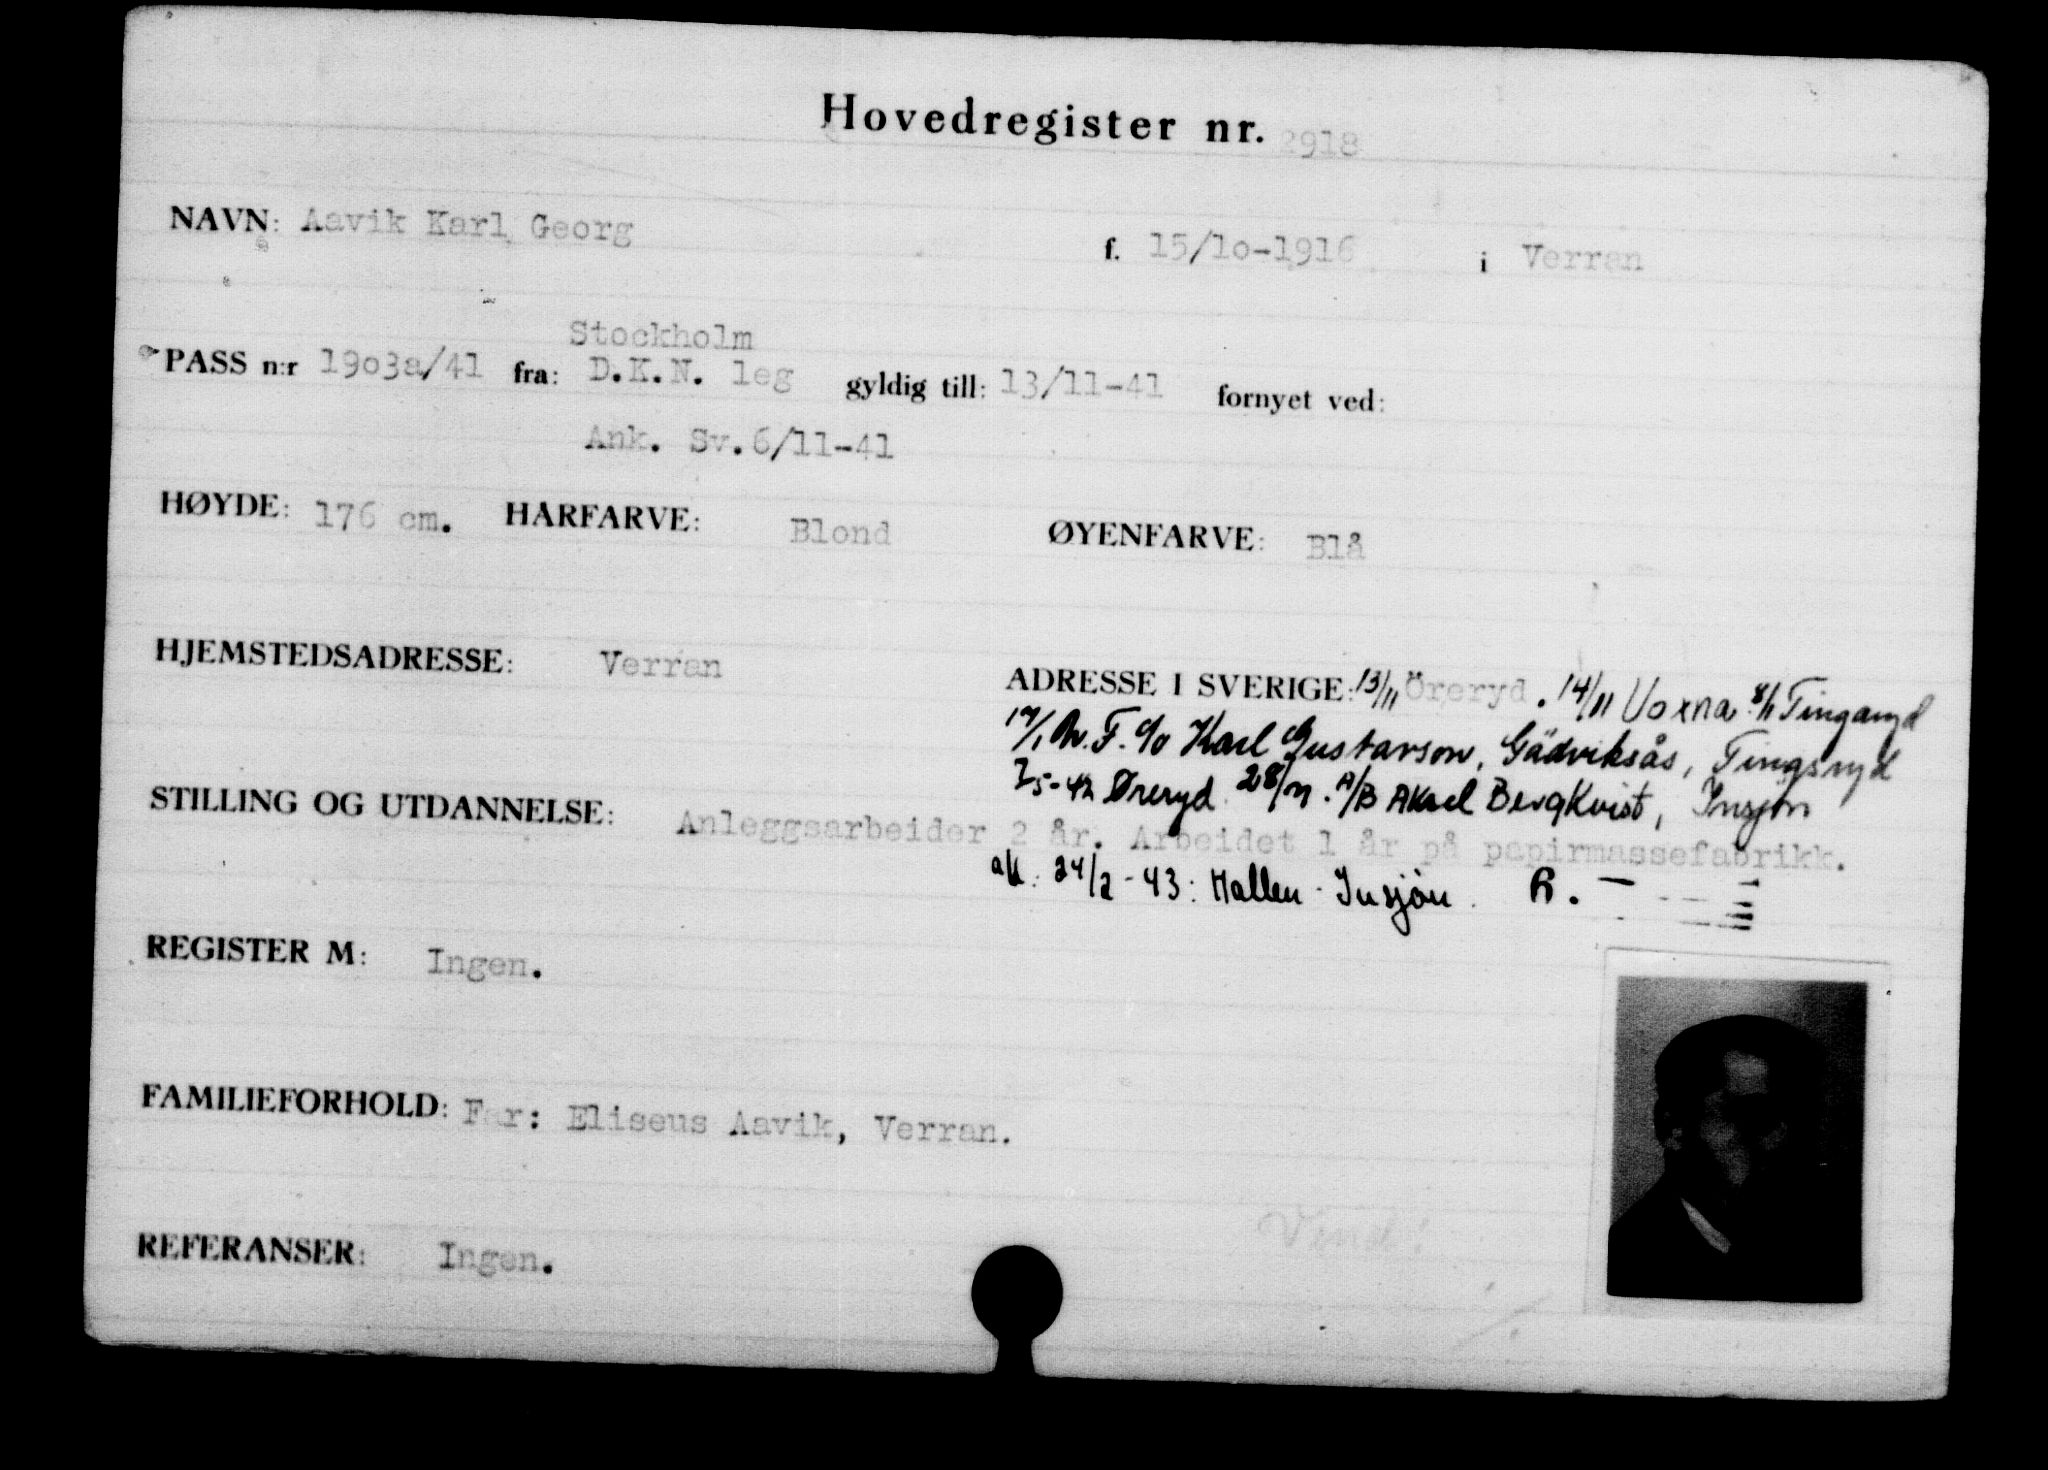 Hovedregister nr. 2918
NAVN: Aavik Karl Georg f. 15/10-1916 i Verran
Stockholm
PASS n:r 1903a/41 fra: D.K.N. leg gyldig till: 13/11-41 fornyet ved:
Ank. Sv.6/11-41
HØYDE: 176 cm. HARFARVE: Blond ØYENFARVE: Blå
HJEMSTEDSADRESSE: Verran
ADRESSE I SVERIGE: 13/11 Öreryd . 14/11 Voxna
Karl Gustavson, Gädviksås, Tingsryd
Øreryd A/B Bergkvist, Insjøn
STILLING OG UTDANNELSE: Anleggsarbeider 2 år. Arbeidet 1 år på papirmassefabrikk.
24/2-43: Hallen - Insjön. R. -
REGISTER M: Ingen.
FAMILIEFORHOLD: Far: Eliseus Aavik, Verran.
Vend!
REFERANSER: Ingen.